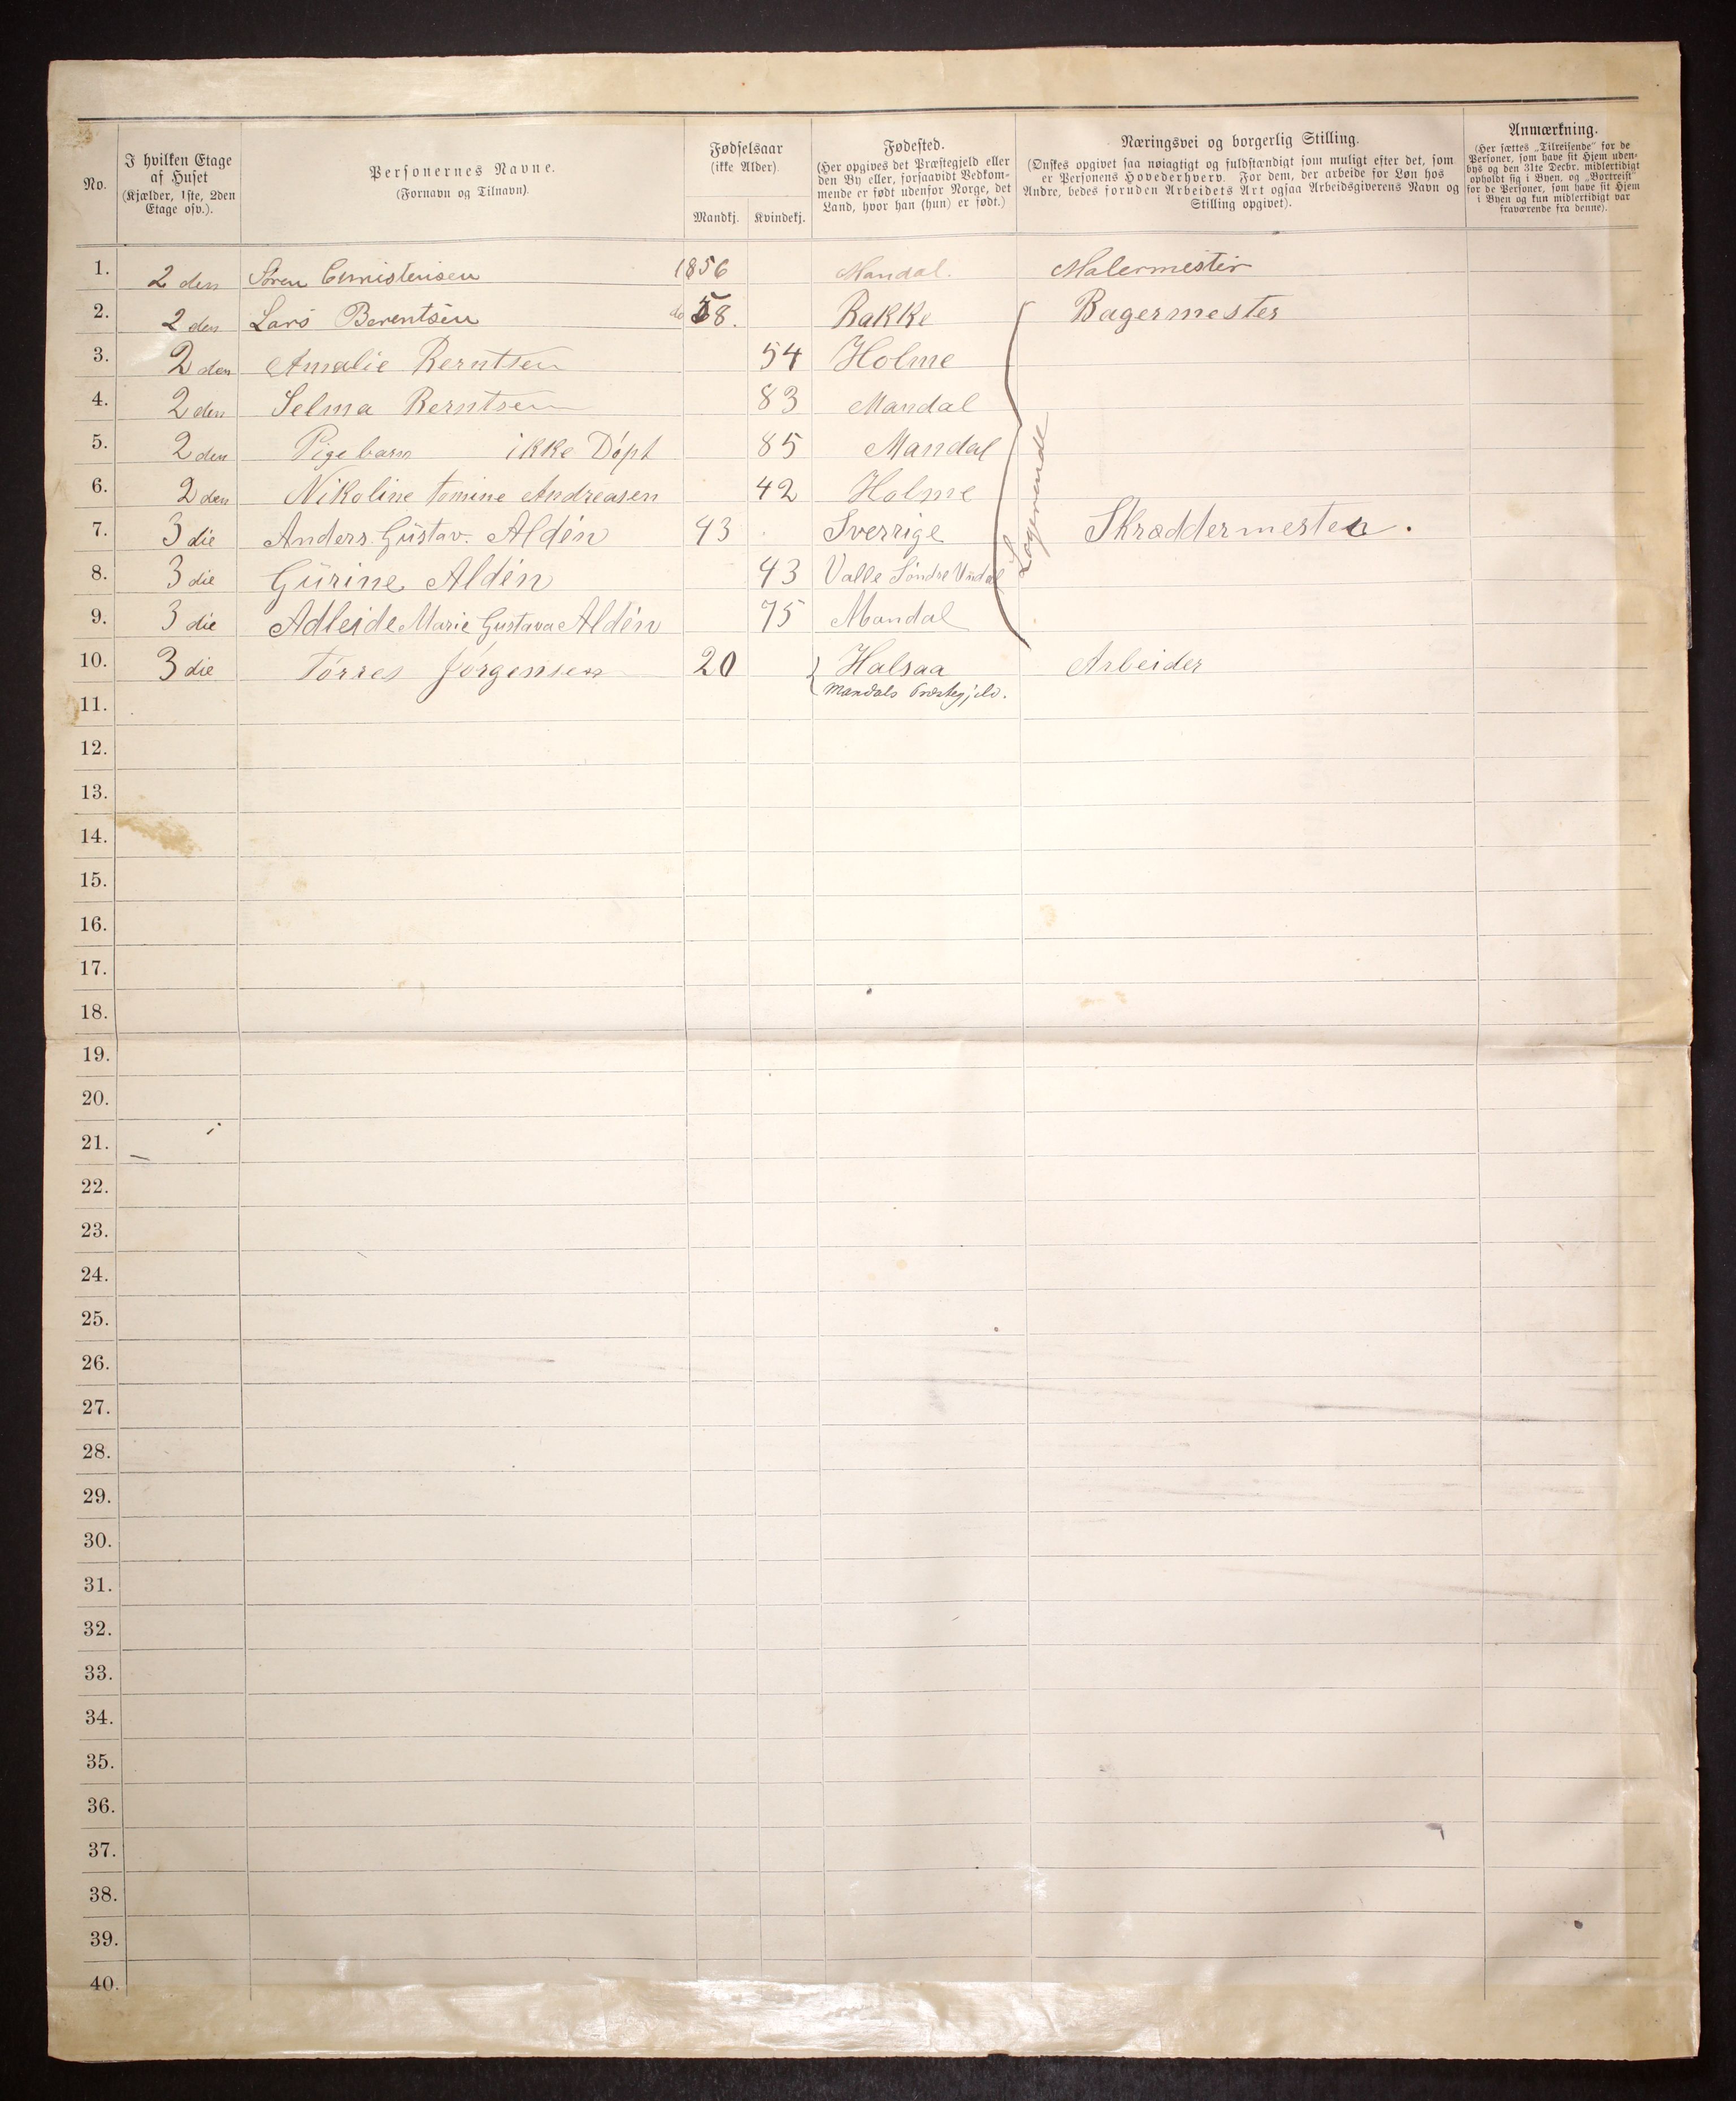 No.
I hvilken Etage
af Huset
(Kjælder, 1ste, 2den
Etage osv.).
Personernes Navne.
(Fornavn og Tilnavn).
Fødselsaar
(ikke Alder).
Mandkj. Kvindekj.
Fødested.
(Her opgives det Præstegjeld eller
den By eller, forsaavidt Vedkom-
mende er født udenfor Norge, det
Land, hvor han (hun) er født.)
Næringsvei og borgerlig Stilling.
(Ønskes opgivet saa nøiagtigt og fuldstændigt som muligt efter det, som
er Personens Hovederhverv. For dem, der arbeide for Løn hos
Andre, bedes foruden Arbeidets Art ogsaa Arbeidsgiverens Navn og
Stilling opgivet).
Anmærkning.
(Her sættes „Tilreisende" for de
Personer, som have sit Hjem uden-
bys og den 31te Decbr. midlertidigt
opholdt sig i Byen, og „Bortreist"
for de Personer, som have sit Hjem
i Byen og kun midlertidigt var
fraværende fra denne).
1. 2 den Søren Christensen 1856 Mandal. Malermester
2. 2 den Lars Berentsen do 58. Bakke Bagermester
3. 2 den Amalie Berntsen 54 Holme
4. 2 den Selma Berntsen 83 Mandal
5. 2 den Pigebarn ikke Døpt 85 Mandal
6. 2 den Nikoline Tomine Andreasen 42 Holme
Logerende
7. 3 die Anders Gustav. Aldén 43 Sverrige Skræddermester.
8. 3 die Gurine Aldén 43 Valle Søndre Undal
9. 3 die Adleide Marie Gustava Aldén 75 Mandal
10. 3 die Tørres Jørgensen 20 Halsaa Arbeider
Mandals Præstegjeld.
11.
12.
13.
14.
15.
16.
17.
18.
19.
20.
21.
22.
23.
24.
25.
26.
27.
28.
29.
30.
31.
32.
33.
34.
35.
36.
37.
38.
39.
40.